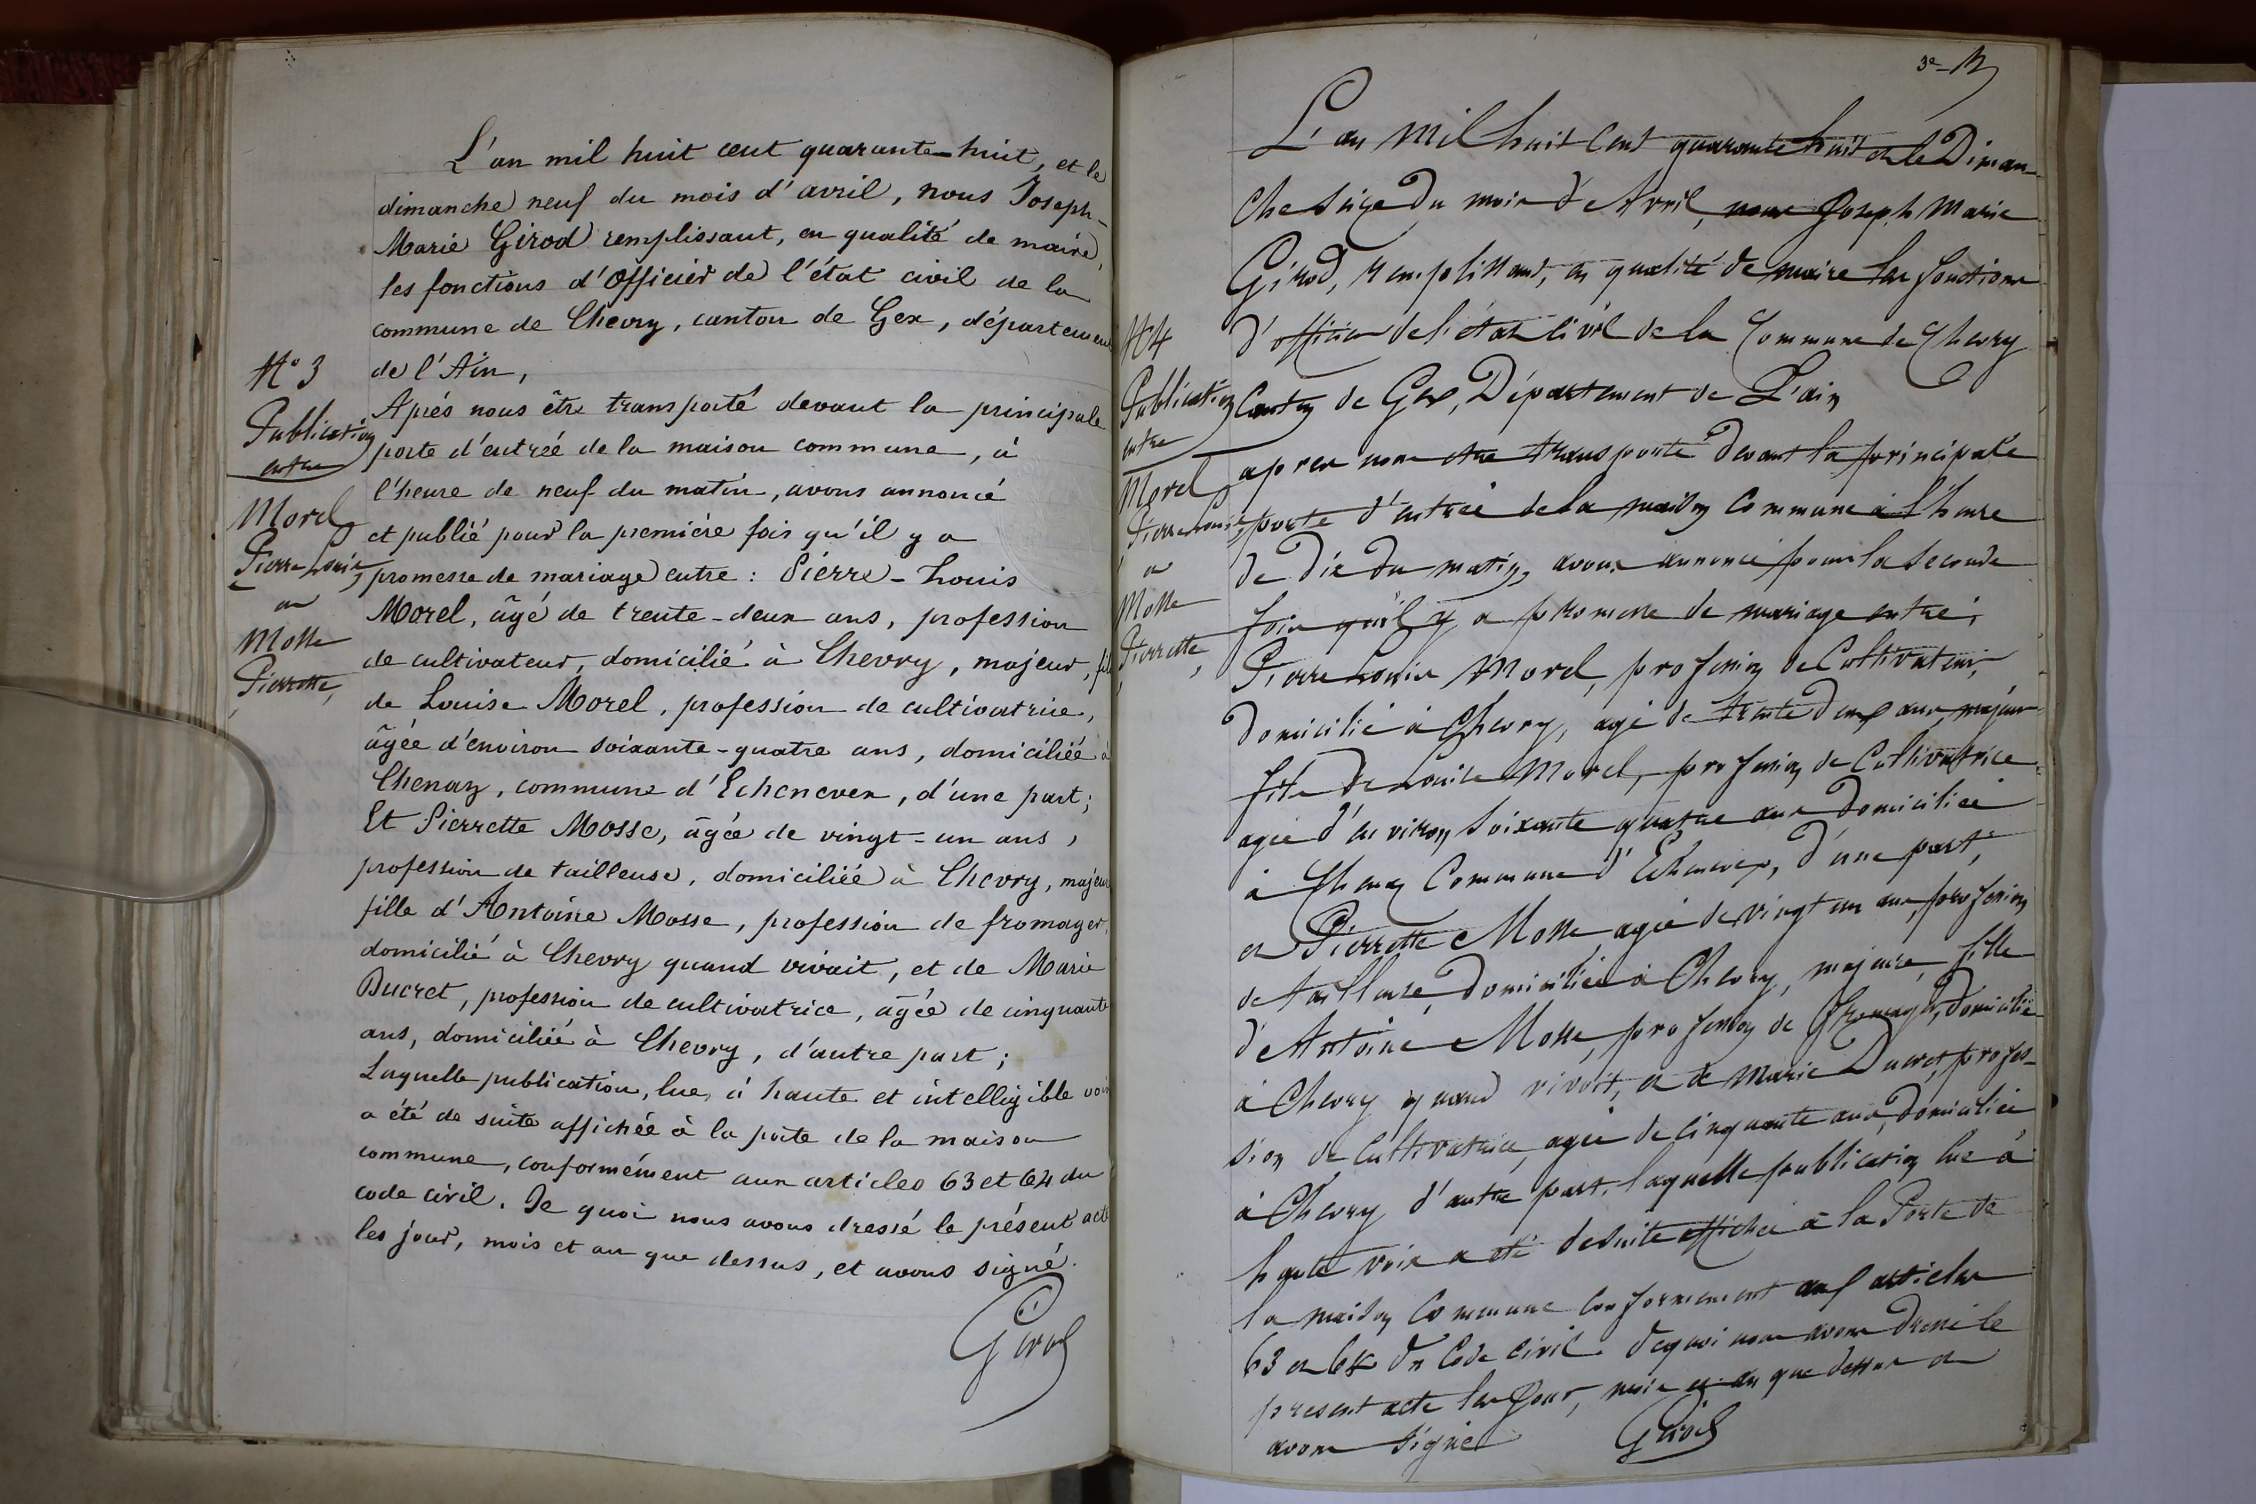 L'an mil huit cent quarante-huit, et le
dimanche neuf du mois d'avril, nous Joseph-
Marie Girod remplissant, en qualité de maire,
les fonctions d'Officier de l'état civil de la
commune de Chevry, canton de Gex, département
de l'Ain,
N° 3
Publication
entre
Morel
Pierre Louis,
et
Mosse
Pierrette,
Après nous être transporté devant la principale
porte d'entrée de la maison commune, à
l'heure de neuf du matin, avons annoncé
et publié pour la première fois qu'il y a
promesse de mariage entre : Pierre-Louis
Morel, âgé de trente-deux ans, profession
de cultivateur, domicilié à Chevry, majeur, fils
de Louise Morel, profession de cultivatrice,
âgée d'environ soixante-quatre ans, domiciliée à
Chenaz, commune d'Echenevex, d'une part;
Et Pierrette Mosse, âgée de vingt-un ans,
profession de tailleuse, domiciliée à Chevry, majeure
fille d'Antoine Mosse, profession de fromager,
domicilié à Chevry quand vivait, et de Marie
Ducret, profession de cultivatrice, âgée de cinquante
ans, domiciliée à Chevry, d'autre part;
Laquelle publication, lue, à haute et intelligible voix
a été de suite affichée à la porte de la maison
commune, conformément aux articles 63 et 64 du
code civil. De quoi nous avons dressé le présent acte
les jour, mois et an que dessus, et avons signé.
Girod
L'an mil huit cent quarante huit et le Diman-
che seize du mois d'Avril, nous Joseph Marie
Girod, remplissant, en qualité de maire les fonctions
d'officier de l'état civil de la Commune de Chevry
Canton de Gex, Département de L'ain
N 4
Publication
entre
Morel
Pierre Louis,
et
Mosse
Pierrette,
apres nous etre transporté devant la principale
porte d'entrée de la maison Commune à l'heure
de dix du matin, avons annoncé pour la seconde
fois qu'il y a promesse de mariage entre;
Pierre Louis Morel, profession de Cultivateur,
domicilié à Chevry, agé de trente deux ans, majeur
fils de Louise Morel, profession de Cultivatrice
agée d'environ soixante quatre ans domiciliée
à Chenaz Commune d'Echenevex, d'une part,
et Pierrette Mosse, agée de vingt un ans, profession
de tailleuse, domiciliée à Chevry, majeure, fille
d'Antoine Mosse, profession de fromager, domicilié
à Chevry quand vivait, et de Marie Ducret, profes-
sion de Cultivatrice, agée de cinquante ans, domiciliée
à Chevry d'autre part, laquelle publication lue à
haute voix a été de suite affichée à la Porte de
la maison Commune conformement aux articles
63 et 64 du Code Civil. de quoi nous avons dressé le
present acte les jour, mois et an que dessus et
avons signé
Girod